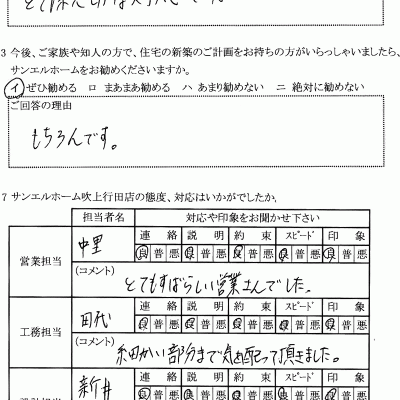 3 今後、ご家族や知人の方で、住宅の新築のご計画をお持ちの方がいらっしゃいましたら、
サンエルホームをお勧めくださいますか。
イ ぜひ勧める ロ まあまあ勧める ハ あまり勧めない ニ 絶対に勧めない
ご回答の理由
もちろんです。
7 サンエルホーム吹上行田店の態度、対応はいかがでしたか。
担当者名 対応や印象をお聞かせ下さい
営業担当 中里 連絡 説明 約束 スピード 印象
良 普 悪 良 普 悪 良 普 悪 良 普 悪 良 普 悪
(コメント)
とてもすばらしい営業さんでした。
工務担当 田代 連絡 説明 約束 スピード 印象
良 普 悪 良 普 悪 良 普 悪 良 普 悪 良 普 悪
(コメント)
細かい部分まで気を配って頂きました。
新井 連絡 説明 約束 スピード 印象
良 普 悪 良 普 悪 良 普 悪 良 普 悪 良 普 悪